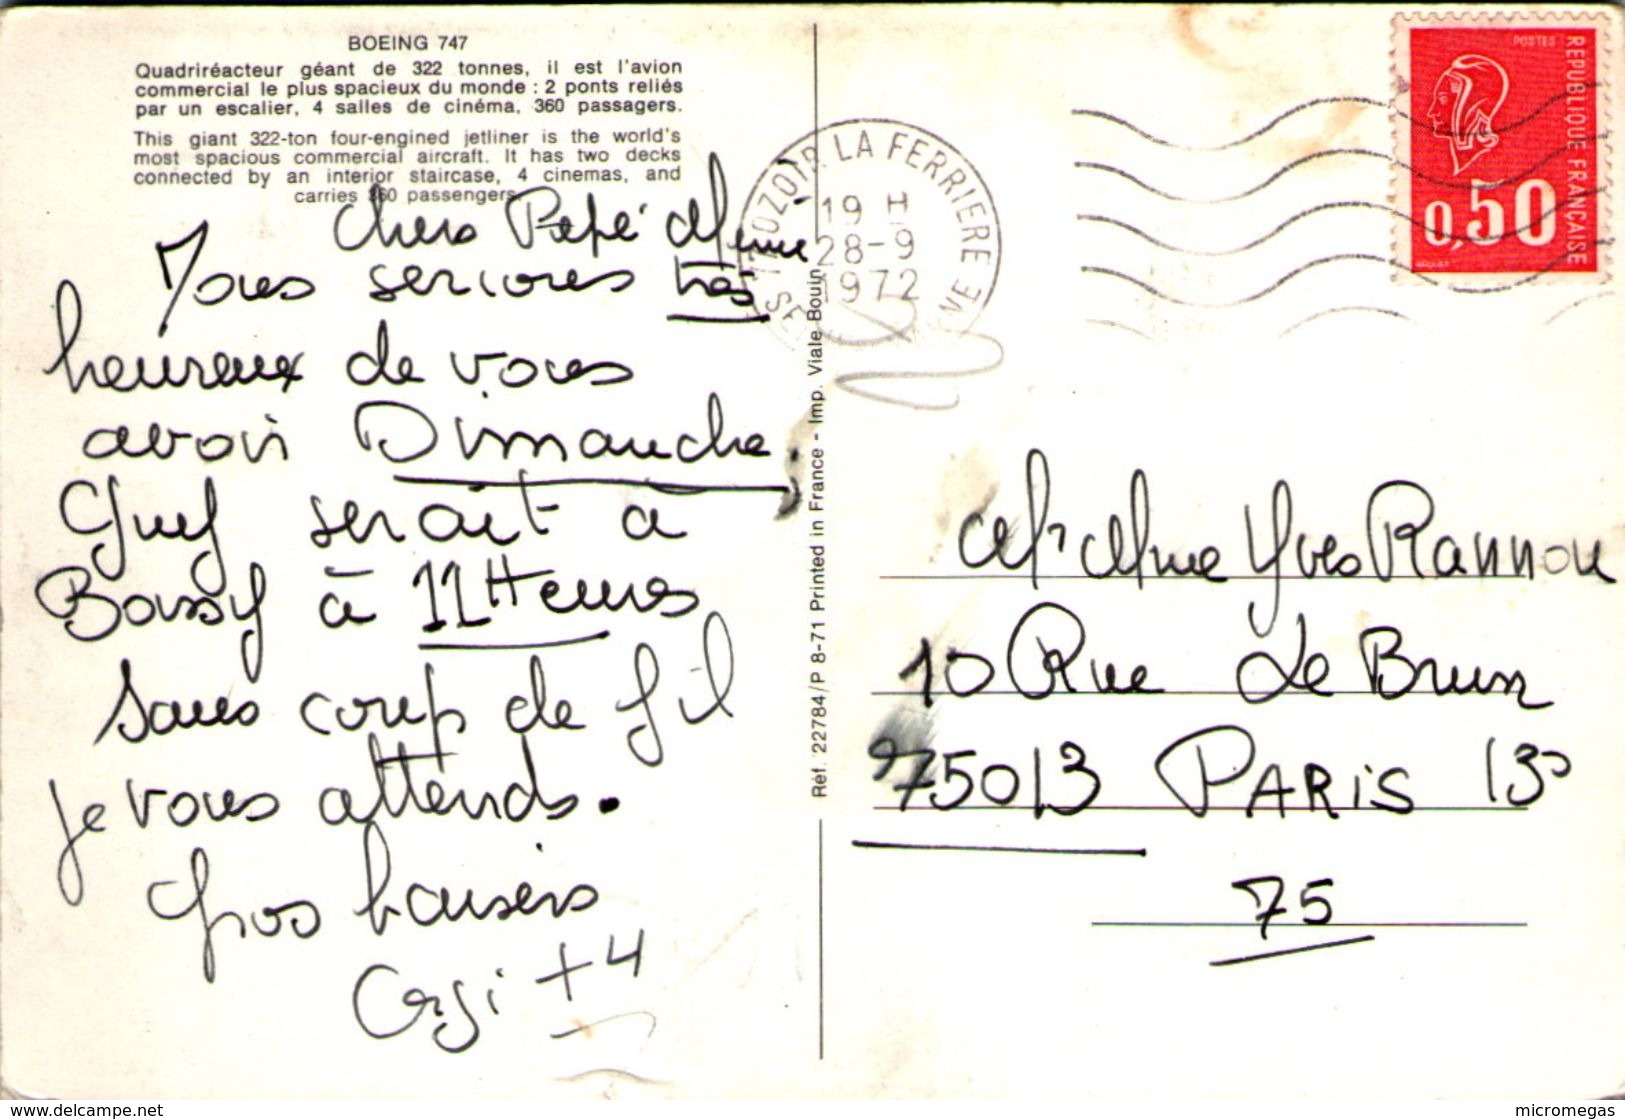 BOEING 747
Quadriréacteur géant de 322 tonnes, il est l'avion
commercial le plus spacieux du monde : 2 ponts reliés
par un escalier, 4 salles de cinéma, 360 passagers.
This giant 322-ton four-engined jetliner is the world's
most spacious commercial aircraft. It has two decks
connected by an interior staircase, 4 cinemas, and
carries 360 passengers.
Chers Pépé Mémé
Nous serions très
heureux de vous
avoir Dimanche.
serait à
Boissy à 11 Heures
sans coup de fil
je vous attends.
Gros baisers
+ 4
Réf. 22784/P 8-71 Printed in France - Imp. Viale Bouin
77 OZOIR LA FERRIERE
19 H
28-9
1972
POSTES
REPUBLIQUE FRANÇAISE
0,50
Mr Mme Yves Rannou
10 Rue Le Brun
75013 PARIS 13e
75
www.delcampe.net
micromegas